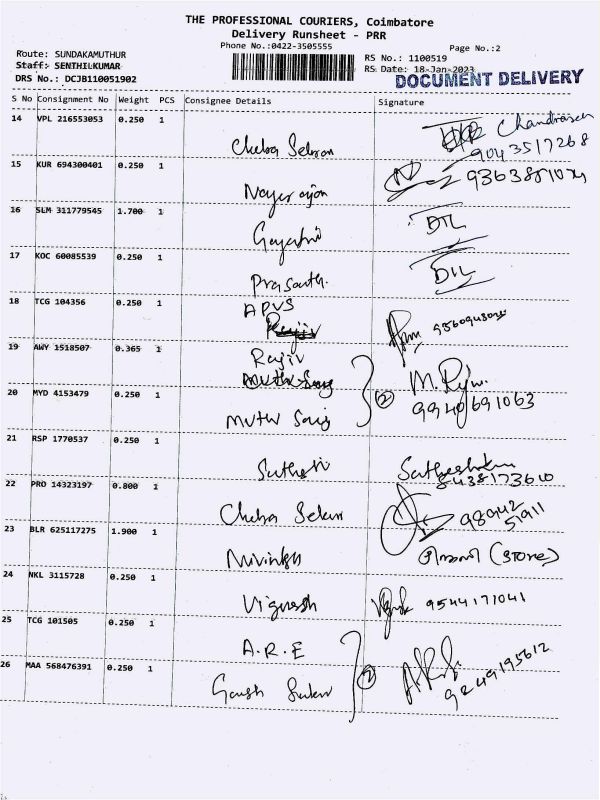 THE PROFESSIONAL COURIERS, Coimbatore
Delivery Runsheet - PRR
Phone No.:0422-3505555
Page No.:2
Route: SUNDAKAMUTHUR
RS No.: 1100519
Staff: SENTHILKUMAR
RS Date: 18-Jan-2023
DRS No.: DCJB110051902
DOCUMENT DELIVERY
S No Consignment No Weight PCS Consignee Details Signature
14 VPL 216553053 0.250 1
Cheba Selvan
9043517268
15 KUR 694300401 0.250 1
16 SLM 311779545 1.700 1
Gayathri
17 KOC 60085539 0.250 1
Prasanth.
18 TCG 104356 0.250 1
APVS
19 AWY 1518507 0.365 1
Rajiv
20 MYD 4153479 0.250 1
②
9940691063
21 RSP 1770537 0.250 1
8438173610
22 PRO 14323197 0.800 1
98942
51911
23 BLR 625117275 1.900 1
(STORE)
24 NKL 3115728 0.250 1
Vignesh
9544171041
25 TCG 101505 0.250 1
A.R.E
26 MAA 568476391 0.250 1
②
9249195612